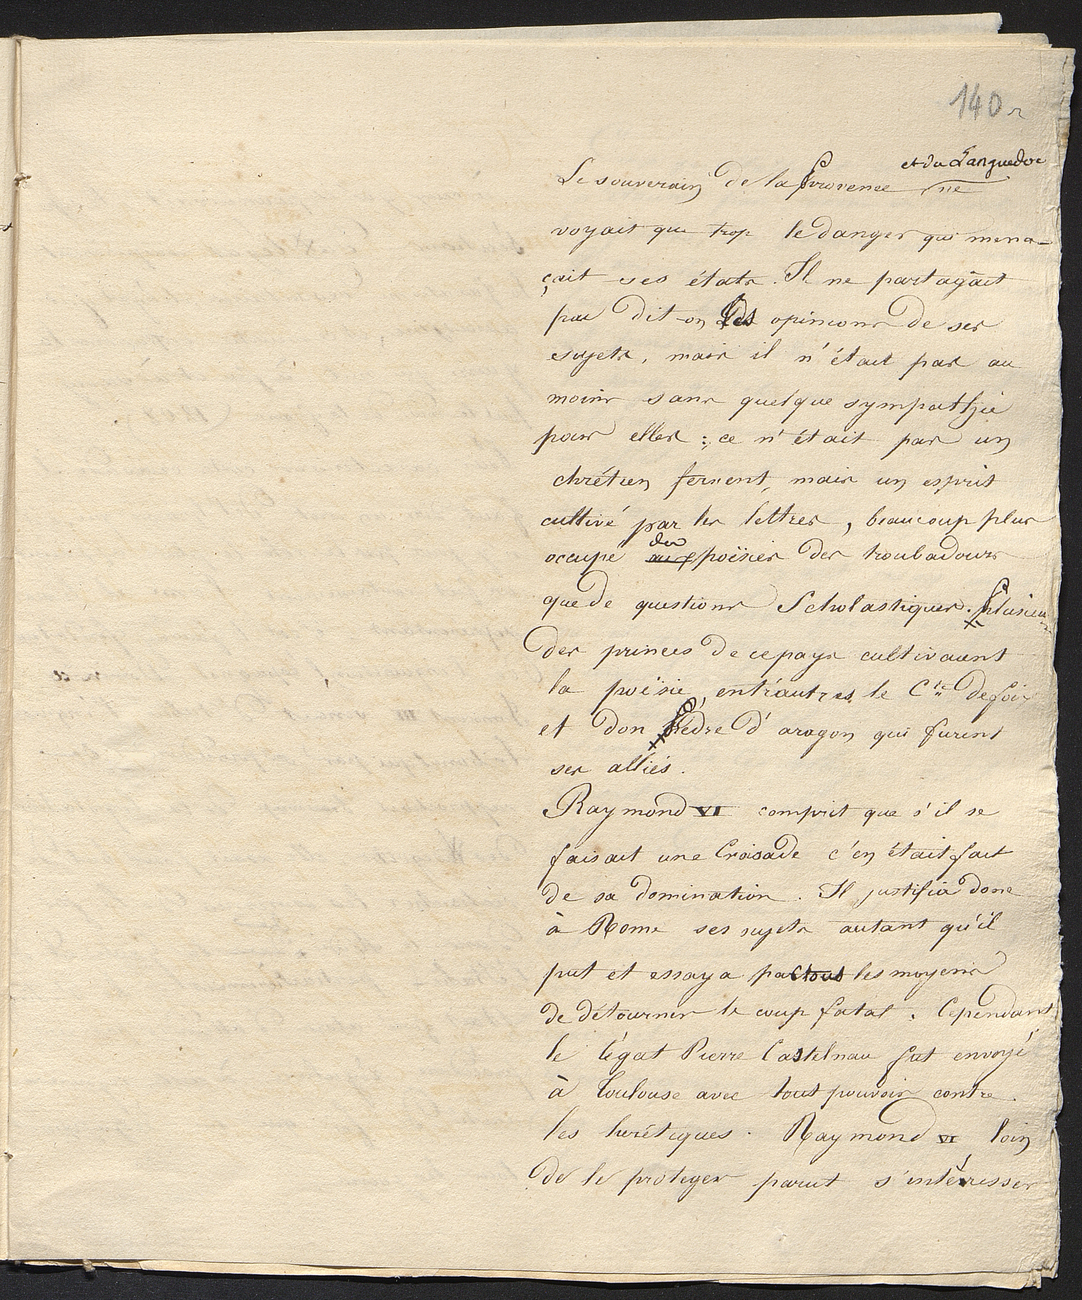 140 r
et du Languedoc
Le souverain de la Provence ne
voyait que trop le danger qui mena-
çait ses états. Il ne partageait
pas dit-on les opinions de ses
sujets, mais il n'était pas au
moins sans quelque sympathie
pour elles : ce n'était pas un
chrétien fervent, mais un esprit
cultivé par les lettres, beaucoup plus
des
occupé aux poësies des troubadours
que de questions Scholastiques. Plusieurs
des princes de ce pays cultivaient
la poësie, entr'autres le Cte de foix
et don Pèdre d'aragon qui furent
ses alliés.
Raymond VI comprit que s'il se
faisait une Croisade c'en était fait
de sa domination. Il justifia donc
à Rome ses sujets autant qu'il
put et essaya par tous les moyens
de détourner le coup fatal. Cependant
le légat Pierre Castelnau fut envoyé
à Toulouse avec tout pouvoir contre
les hérétiques. Raymond VI loin
de le protéger parut s'intéresser